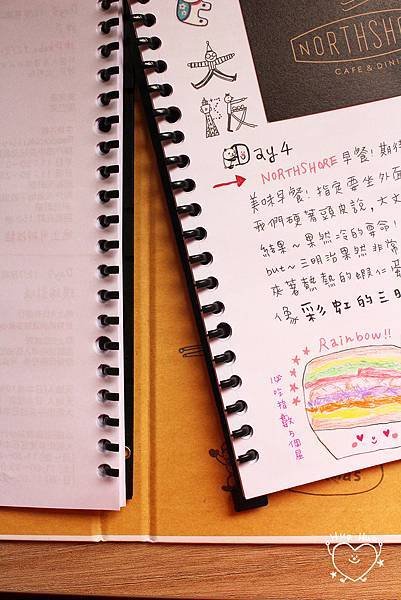 NORTHSHO
CAFE & DINI
大
阪
Day 4
NORTHSHORE 早餐!期待
美味早餐!指定要坐外面
我們硬著頭皮說,大丈
結果~果然冷的要命!
but~三明治果然非常
夾著熱熱的蝦仁蛋
像彩虹的三明
Rainbow!!
必吃指數5個星